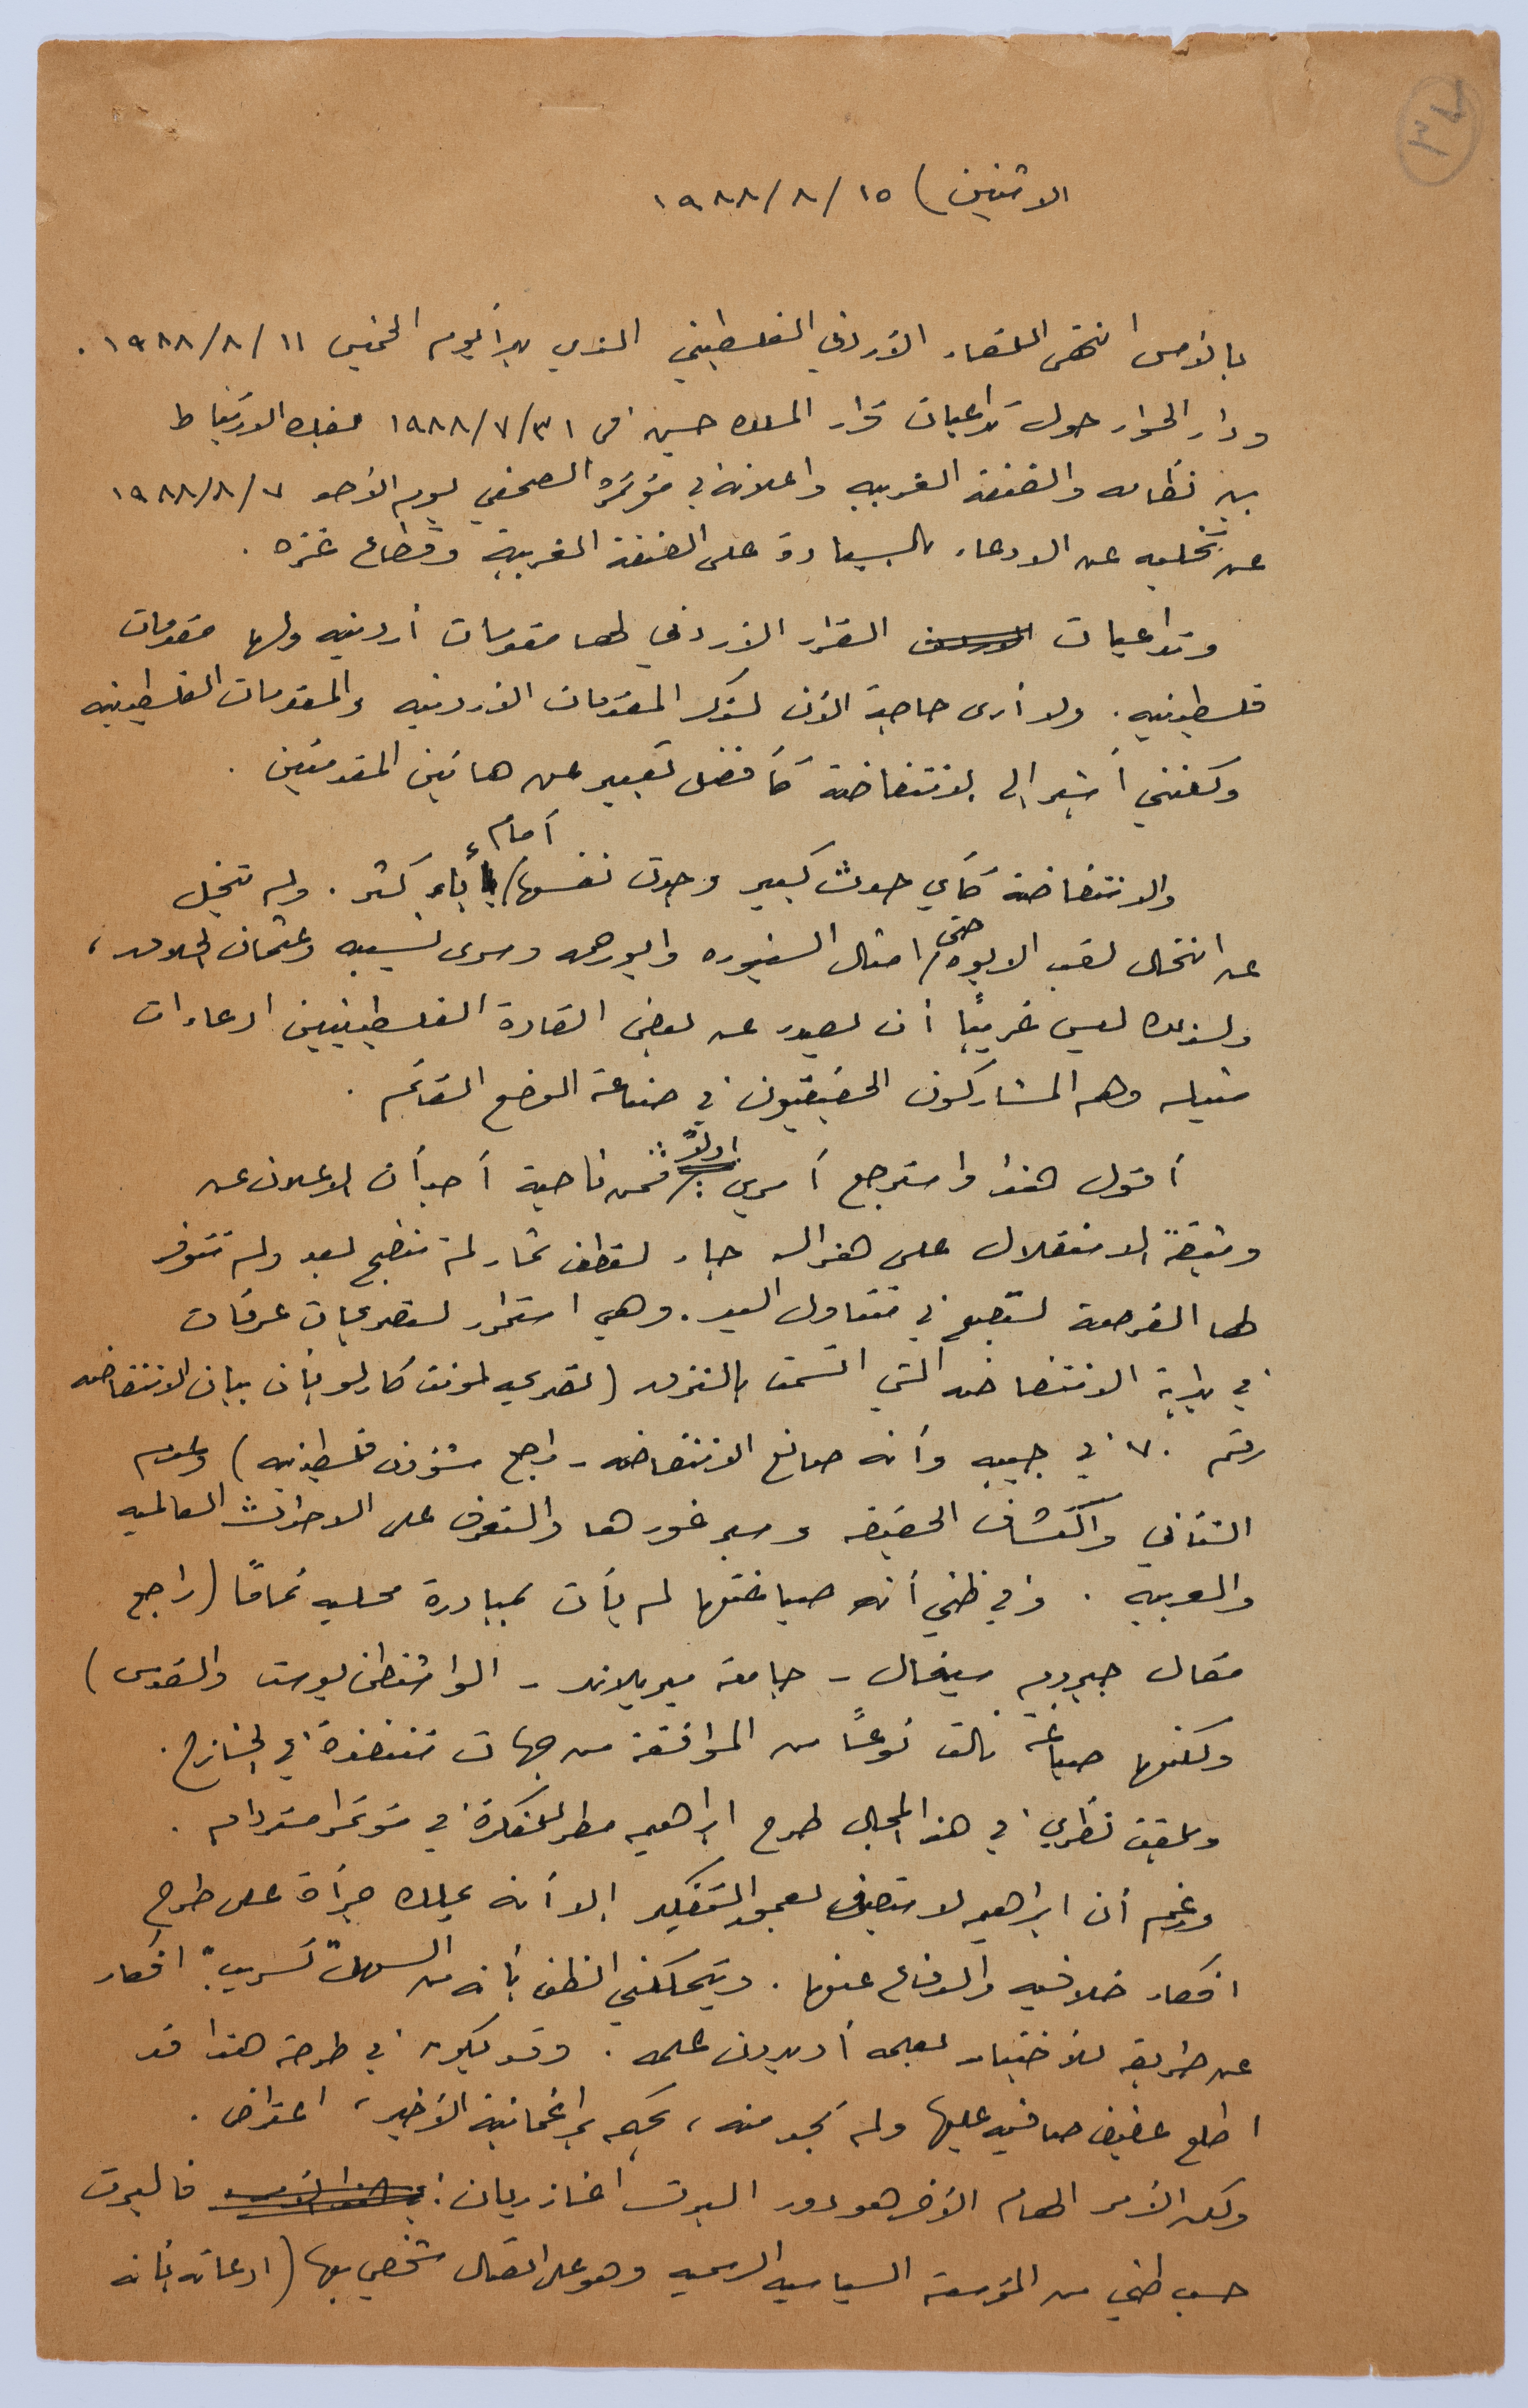 ٣٧
الاثنين) ١٥/٨/١٩٨٨
بالأمس انتهى اللقاء الأردني الفلسطيني الذي بدأ يوم الخميس ١١/٨/١٩٨٨.
ودار الحوار حول تداعيات قرار الملك حسين في ٣١/٧/١٩٨٨ بفك الارتباط
بين نظامه والضفة الغربيه واعلانه في مؤتمره الصحفي يوم الأحد ٧/٨/١٩٨٨
عن تخليه عن الادعاء بالسيادة على الضفة الغربية وقطاع غزه.
وتداعيات القرار الأردني لها مقدمات أردنيه ولها مقدمات
فلسطينيه. ولا أرى حاجة الآن لذكر المقدمات الأردنيه والمقدمات الفلسطينيه
ولكنني أشير إلى الانتفاضة كأفضل تعبير عن هاتين المقدمتين.
والانتفاضة كأي حدث كبير وجدت نفسها/ أمام أباء كثر. ولم تبخل
عن انتحال لقب الابوه/ حتى امثال السنيوره وابورحمه وسرى نسيبه وعثمان الحلاق،
ولذلك ليس غريبًا أن يصدر عن بعض القادة الفلسطينيين ادعاءات
مثيله وهم المشاركون الحقيقيون في صناعة الوضع القائم.
أقول هذا واسترجع أمري: أولاً: فمن ناحية أجد أن الاعلان عن
وثيقة الاستقلال على هزاله جاء لقطف ثمار لم تنضج بعد ولم تتوفر
لها الفرصة لتصبح في متناول اليد. وهي استمرار لتصريحات عرفات
في بداية الانتفاضه التي اتسمت بالنزق (تصريحه لمونت كارلو بأن بيان الانتفاضه
رقم ٧٠ في جيبه وأنه صانع الانتفاضه - راجع شؤون فلسطينيه) وعدم
التأني واكتشاف الحقيقه وسبر غورها والتعرف على الاحداث العالميه
والعربيه. وفي ظني أنه صياغتها لم يأت بمبادرة محليه تمامًا (راجع
مقال جيروم سيغال - جامعة ميريلاند - الواشنطن بوست والقدس)
ولكنها صياغة نالت نوعًا من الموافقة من جهات متنفذة في الخارج.
ويلفت نظري في هذا المجال طرح ابراهيم مطر للفكرة في مؤتمر امستردام.
ورغم أن ابراهيم لا يتصف بعمق التفكير إلا أنه يملك جرأة على طرح
افكار خلافيه والدفاع عنها. ويتملكني الظن بأنه من السهل "تسريب" افكار
عن طريقه للأختبار بعلمه أو بدون علمه. وقد يكون في طرحه هذا قد
اطلع عفيف صافيه عليها ولم يجد منه، بحكم براغماتية الأخير، اعتراض.
ولكن الأمر الهام الآخر هو دور البرت اغازريان: فالبرت
حسب ظني من المؤسسة السياسيه الرسميه وهو على اتصال شخصي بها (ادعائه بأنه